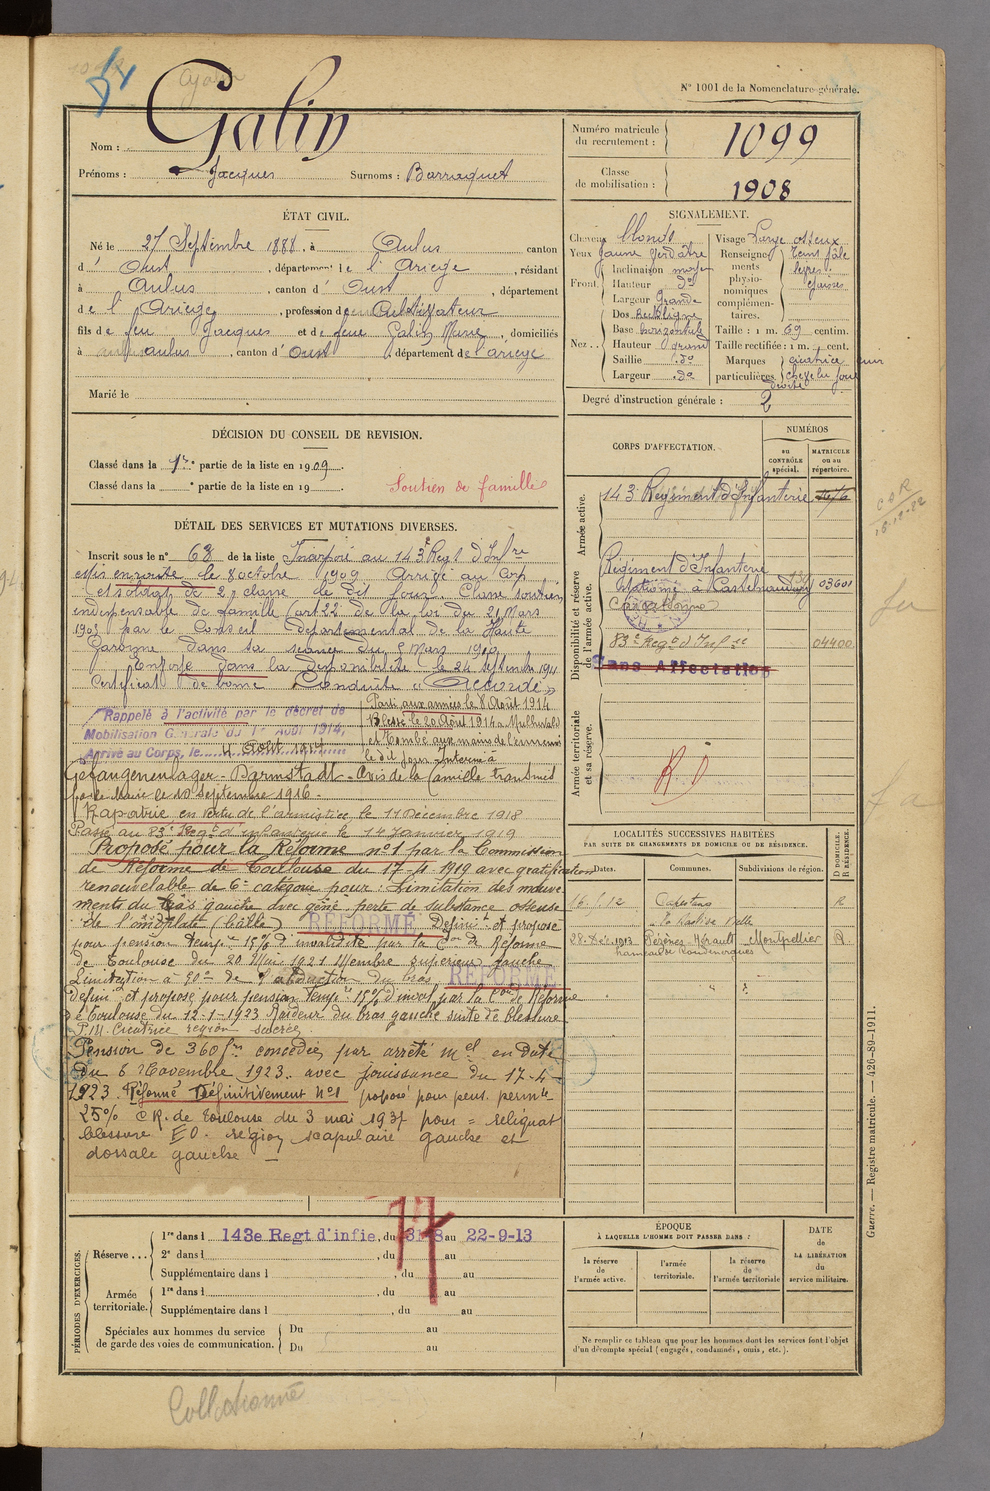 N° 1001 de la Nomenclature générale.
Nom : Galin
Prénoms : Jacques Surnoms : Barraquet
Numéro matricule du recrutement : 1099
Classe de mobilisation : 1908
ÉTAT CIVIL.
Né le 27 Septembre 1888, à Aulus canton
d' Oust, département de l'Ariège, résidant
à Aulus, canton d' Oust, département
de l'Ariège, profession de Cultivateur
fils de feu Jacques et de feue Galin Marie, domiciliés
à Aulus, canton d' Oust, département de l'ariege
Marié le
SIGNALEMENT.
Cheveux blonds
Yeux jaune verdâtre
Front : Inclinaison moyen
Hauteur do
Largeur Grande
Nez : Dos Rectiligne
Base horizontale
Hauteur grand
Saillie do
Largeur do
Visage Large osseux
Renseignements physionomiques complémentaires. Teint pâle lèvres épaisses
Taille : 1 m. 69 centim.
Taille rectifiée : 1 m. cent.
Marques particulières cicatrice cuir chevelu joue droite
Degré d'instruction générale : 2
DÉCISION DU CONSEIL DE REVISION.
Classé dans la 1re partie de la liste en 1909.
Classé dans la partie de la liste en 19
Soutien de famille
CORPS D'AFFECTATION.
NUMÉROS
au CONTRÔLE spécial.
MATRICULE ou au répertoire.
Armée active.
143e Régiment d'Infanterie
Disponibilité et réserve de l'armée active.
Régiment d'Infanterie
Stationné à Castelnaudary 03601
Carcassonne
83e Regt d'Infie 04400
Sans Affectation
Armée territoriale et sa réserve.
R.D
DÉTAIL DES SERVICES ET MUTATIONS DIVERSES.
Inscrit sous le n° 68 de la liste Incorporé au 143e Regt d'Infre
en route le 8 octobre 1909 Arrivé au Corps
et soldat de 2e classe le dit jour. Classé soutien
indispensable de famille (art 22 de la loi du 21 Mars
1905 par le Conseil départemental de la Haute
Garonne dans sa séance du 8 Mars 1910
Envoyé dans la disponibilité le 24 septembre 1911
Certificat de bonne Conduite « Accordé »
Rappelé à l'activité par le décret de
Mobilisation Générale du 1er Août 1914,
Arrivé au Corps, le 4 Août 1914
Parti aux armées le 8 Août 1914
Blessé le 20 Août 1914 à Mulhouse
et tombé aux mains de l'ennemi
le dit jour Interné à
Gefangenenlager - Darmstadt - Avis de la famille transmis
par le Maire le 10 Septembre 1916.
Rapatrié en vertu de l'armistice le 11 Décembre 1918
Passé au 83e Regt d'infanterie le 14 Janvier 1919
Proposé pour la Réforme n°1 par la Commission
de Réforme de Toulouse du 17-4 1919 avec gratification
renouvelable de 6e catégorie pour : Limitation des mouve-
ments du bras gauche avec gêne perte de substance osseuse
de l'omoplate (balle) RÉFORMÉ Définit et proposé
pour pension tempre 15% d'invalidité par la Con de Réforme
de Toulouse du 20 Mai 1921 Membre supérieur gauche
Limitation à 90° de l'abduction du bras RÉFORMÉ
Définit et proposé pour pension tempre 15% d'inval par la Con de Réforme
de Toulouse du 12-1-1923 Raideur du bras gauche suite de blessure
P.M. Cicatrice région sacrée.
Pension de 360 frs concédée par arrêté mel en date
du 6 Novembre 1923 avec jouissance du 17-4
1923. Réformé Définitivement n°1 proposé pour pens. permte
25% CR. de Toulouse du 3 mai 1937 pour = reliquat
blessure EO. région scapulaire gauche et
dorsale gauche
LOCALITÉS SUCCESSIVES HABITÉES
PAR SUITE DE CHANGEMENTS DE DOMICILE OU DE RÉSIDENCE.
Dates. Communes. Subdivisions de région. D DOMICILE. R RÉSIDENCE.
R
28 Déc. 1913 Pézènes Hérault Montpellier R
PÉRIODES D'EXERCICES.
Réserve ... 1re dans l 143e Regt d'infie, du 31-8 au 22-9-13
2e dans l , du au
Supplémentaire dans l , du au
Armée territoriale. 1re dans l , du au
Supplémentaire dans l , du au
Spéciales aux hommes du service de garde des voies de communication. Du au
Du au
ÉPOQUE
À LAQUELLE L'HOMME DOIT PASSER DANS :
la réserve de l'armée active.
l'armée territoriale.
la réserve de l'armée territoriale
DATE de LA LIBÉRATION du service militaire.
Ne remplir ce tableau que pour les hommes dont les services font l'objet
d'un décompte spécial (engagés, condamnés, omis, etc.).
Guerre. — Registre matricule. — 426-89-1911.
Collationné